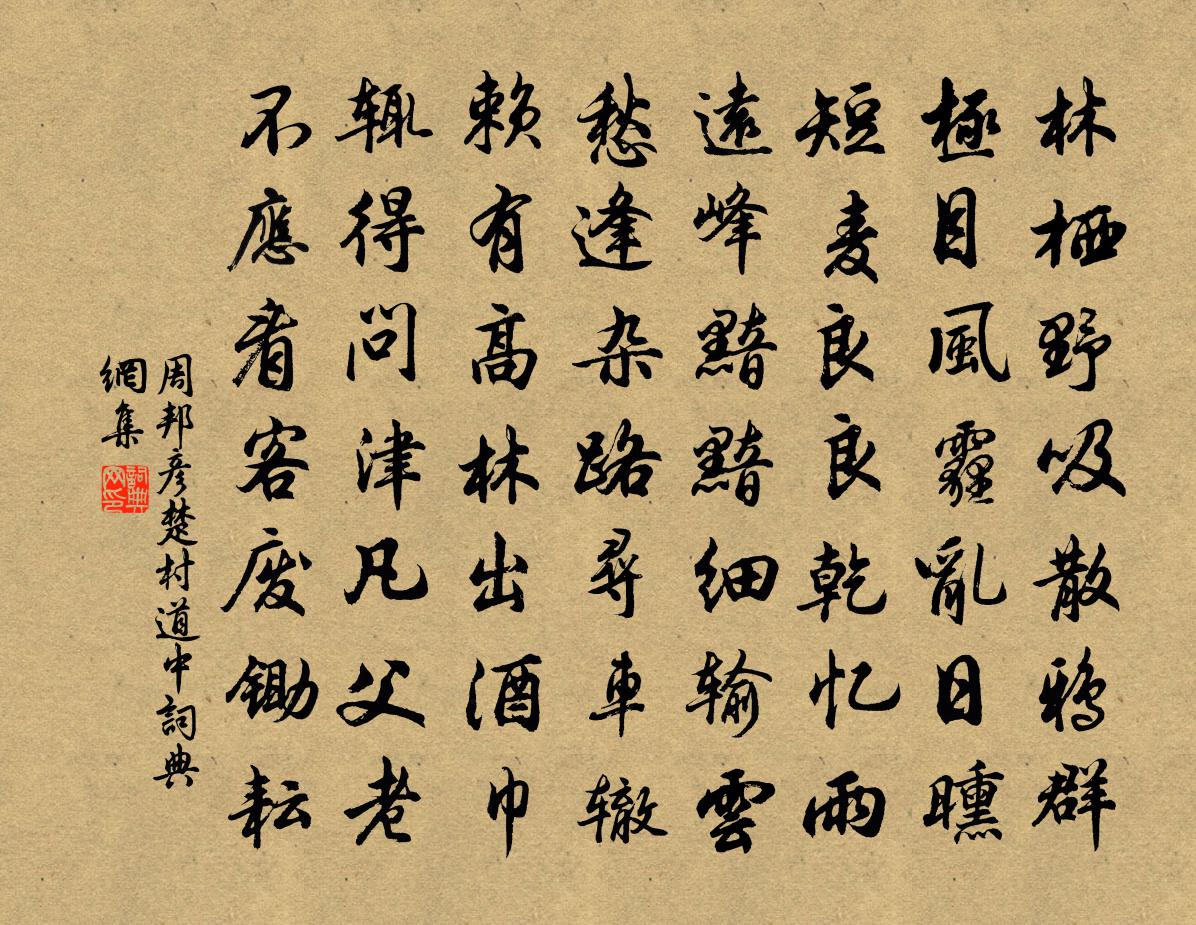 林栖野吸散鸦群
極目風霾亂日曛
短麦良良乾忆雨
遠峰黯黯细输雲
愁逢杂路尋車辙
赖有高林出酒巾
辄得问津凡父老
不應看客废锄耘
周邦彦楚村道中詞典
網集
詞典
网印